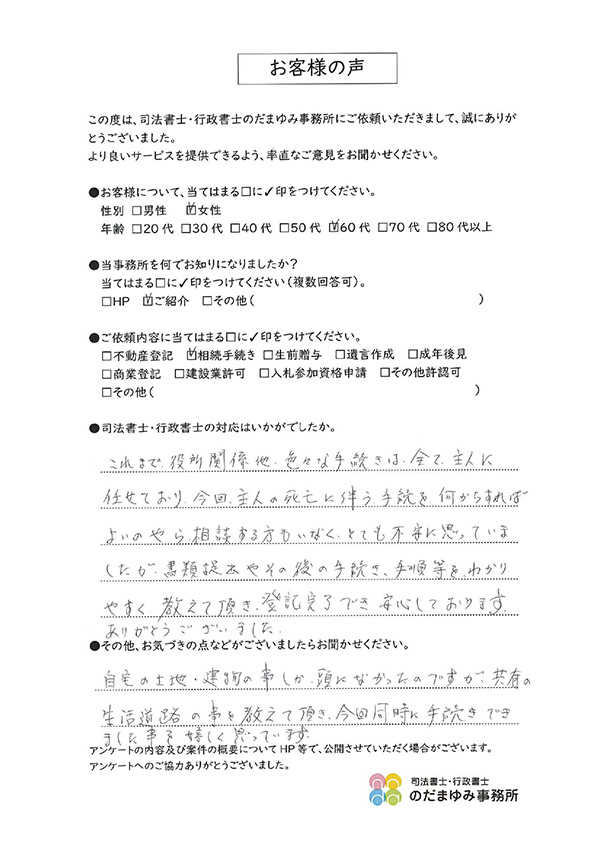 お客様の声
この度は、司法書士・行政書士のだまゆみ事務所にご依頼いただきまして、誠にありが
とうございました。
より良いサービスを提供できるよう、率直なご意見をお聞かせください。
●お客様について、当てはまる□に✓印をつけてください。
性別 □男性 ☑女性
年齢 □20代 □30代 □40代 □50代 ☑60代 □70代 □80代以上
●当事務所を何でお知りになりましたか?
当てはまる□に✓印をつけてください(複数回答可)。
□HP ☑ご紹介 □その他( )
●ご依頼内容に当てはまる□に✓印をつけてください。
□不動産登記 ☑相続手続き □生前贈与 □遺言作成 □成年後見
□商業登記 □建設業許可 □入札参加資格申請 □その他許認可
□その他( )
●司法書士・行政書士の対応はいかがでしたか。
これまで、役所関係他、色々な手続きは、全て、主人に
任せており、今回、主人の死亡に伴う手続を何からすれば
よいのやら、相談する方もいなく、とても不安に思っていま
したが、書類提出やその後の手続き、手順等を、わかり
やすく教えて頂き、登記完了でき安心しております。
ありがとうございました。
●その他、お気づきの点などがございましたらお聞かせください。
自宅の土地・建物の事しか、頭になかったのですが、共有の
生活道路の事を教えて頂き、今回同時に手続きでき
ました事を嬉しく思っています。
アンケートの内容及び案件の概要についてHP等で、公開させていただく場合がございます。
アンケートへのご協力ありがとうございました。
司法書士・行政書士
のだまゆみ事務所